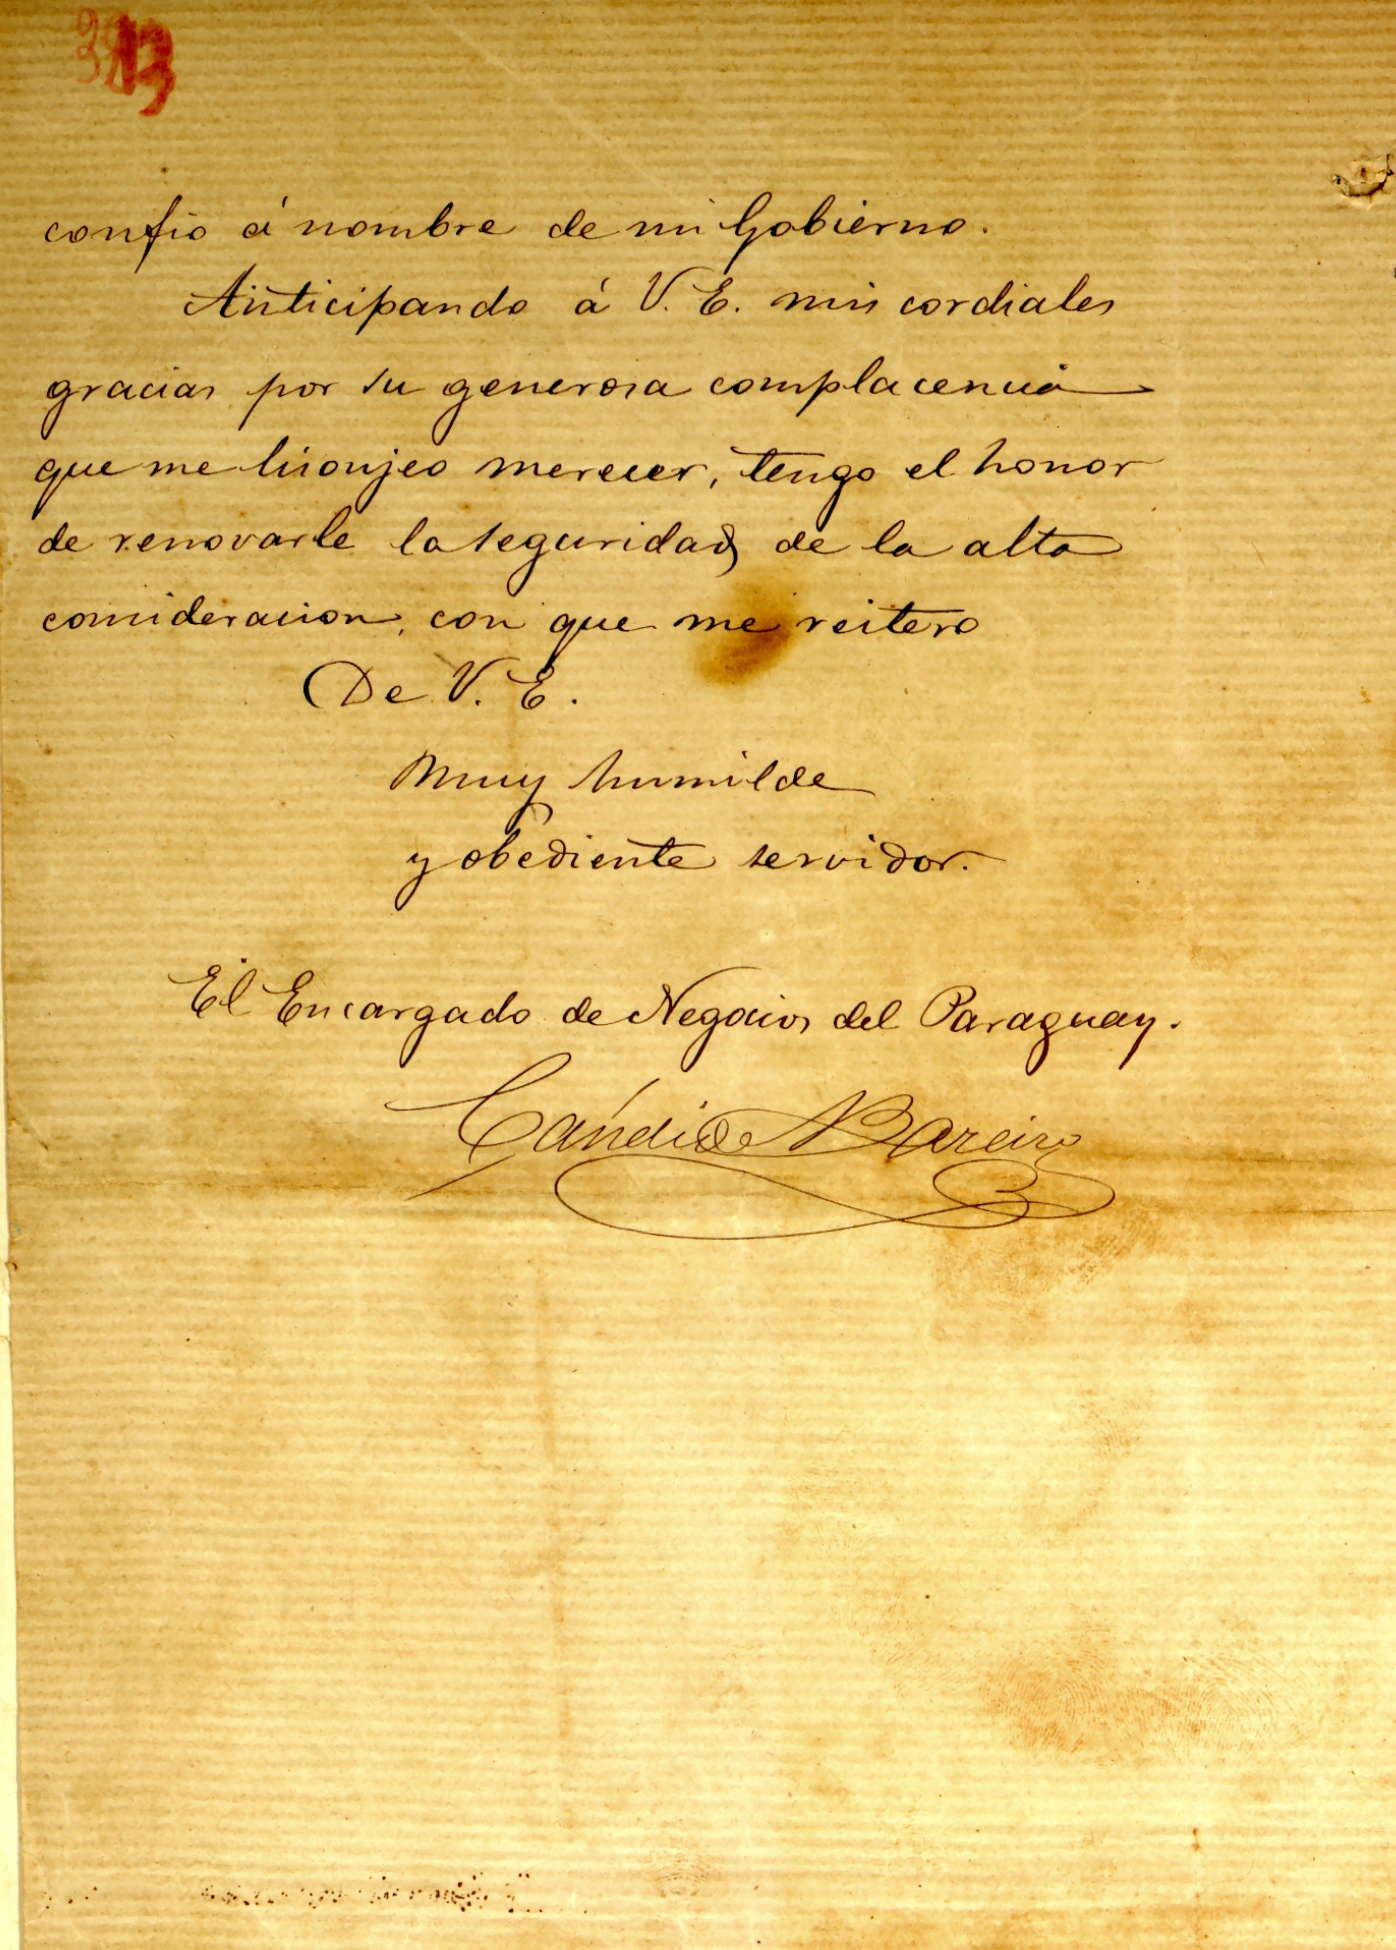 confio á nombre de mi Gobierno.
Anticipando á V. E. mis cordiales
gracias por su generosa complacencia
que me lisonjeo merecer, tengo el honor
de renovarle la seguridad de la alta
consideracion, con que me reitero
De V. E.
Muy humilde
y obediente servidor.
El Encargado de Negocios del Paraguay.
Cándido Bareiro